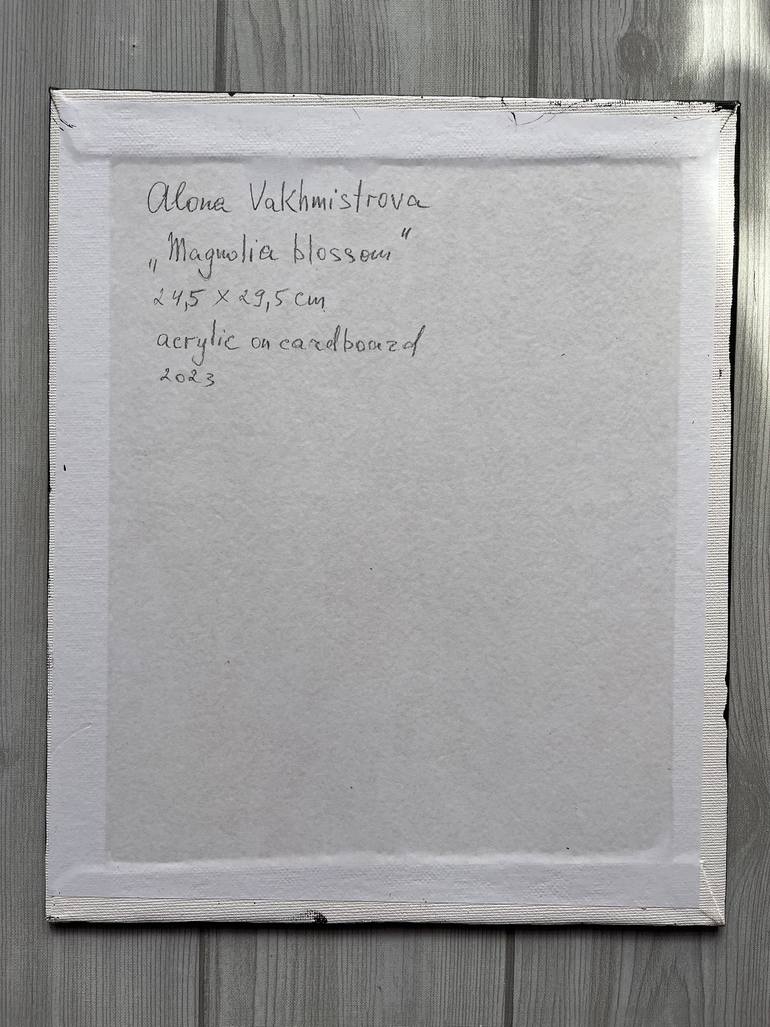 Alona Vakhmistrova
„Magnolia blossom"
24,5 x 29,5 cm
acrylic on cardboard
2023